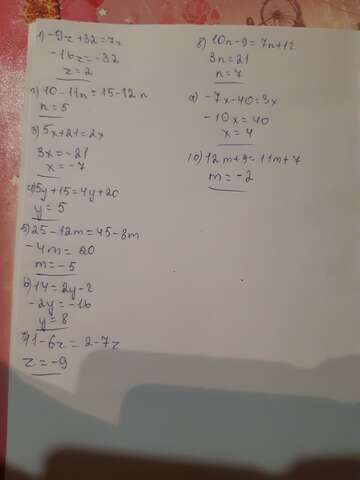 1) -9z+32=7z
-16z=-32
z=2
2) 10-11n=15-12n
n=5
3) 5x+21=2x
3x=-21
x=-7
4) 5y+15=4y+20
y=5
5) 25-12m=45-8m
-4m=20
m=-5
6) 14=2y-2
-2y=-16
y=8
7) 11-6z=2-7z
z=-9
8) 10n-9=7n+12
3n=21
n=7
9) -7x-40=3x
-10x=40
x=4
10) 12m+9=11m+7
m=-2